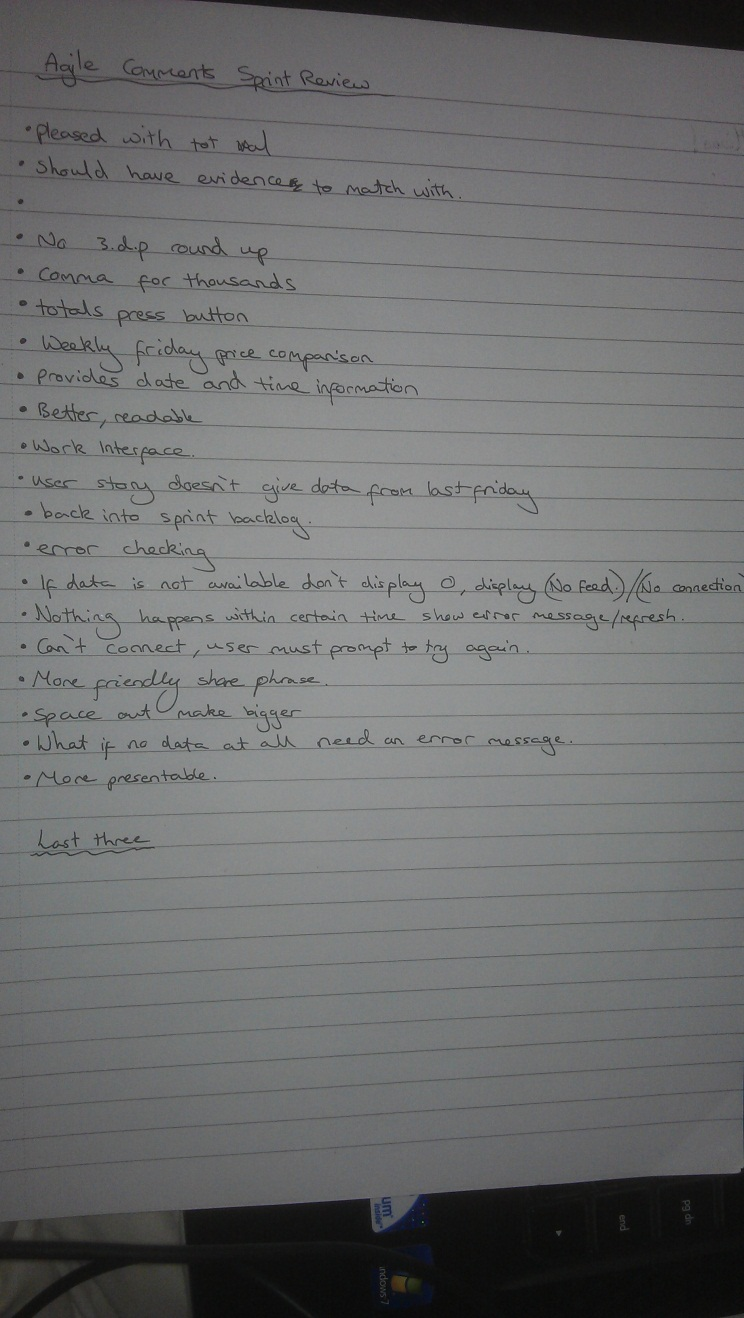 Agile Comments Sprint Review
• pleased with tot val
• should have evidence to match with.
•
• No 3.d.p round up
• Comma for thousands
• totals press button
• Weekly friday price comparison
• Provides date and time information
• Better, readable
• Work Interface.
• user story doesn't give data from last friday
• back into sprint backlog.
• error checking
• If data is not available don't display 0, display (No Feed.)/(No connection)
• Nothing happens within certain time show error message/refresh.
• Can't connect, user must prompt to try again.
• More friendly share phrase.
• Space out make bigger
• What if no data at all need an error message.
• More presentable.
Last three
um
indows 7
end
pg dn